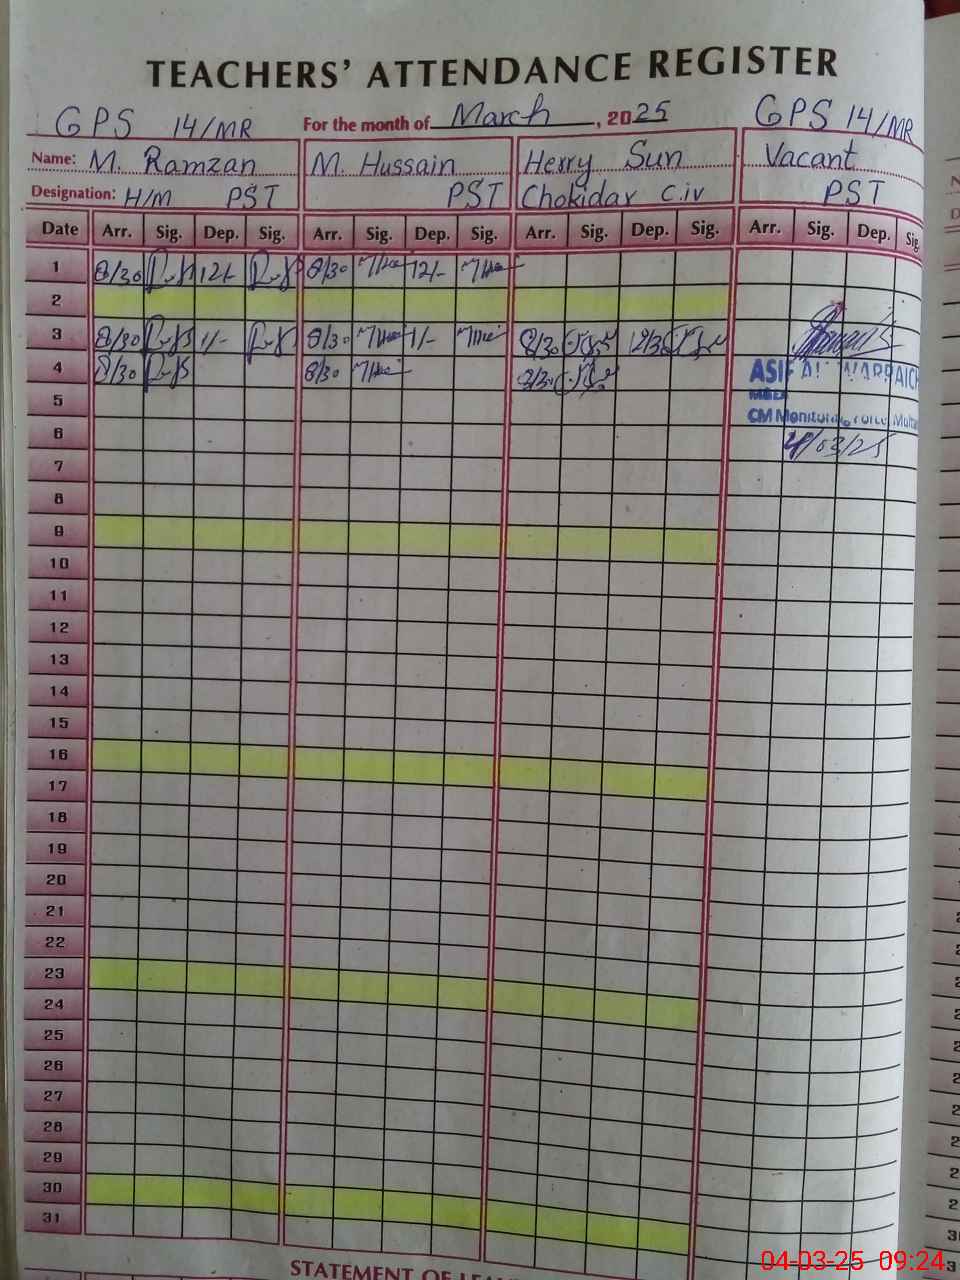 TEACHERS' ATTENDANCE REGISTER
GPS 14/MR For the month of March, 2025 GPS 14/MR
Name: M. Ramzan M. Hussain Herry Sun Vacant
Designation: H/M PST PST Chokidar C.iv PST
Date Arr. Sig. Dep. Sig. Arr. Sig. Dep. Sig. Arr. Sig. Dep. Sig. Arr. Sig. Dep. Sig.
1 8/30 12/- 8/30 12/-
2
3 8/30 1/- 8/30 1/- 8/30 12/30
4 8/30 8/30 8/30
ASIF ALI WARRAICH
5
MEA
CM Monitoring Force Multan
6 4/03/25
7
8
9
10
11
12
13
14
15
16
17
18
19
20
21
22
23
24
25
26
27
28
29
30
31
STATEMENT OF
04-03-25 09:24